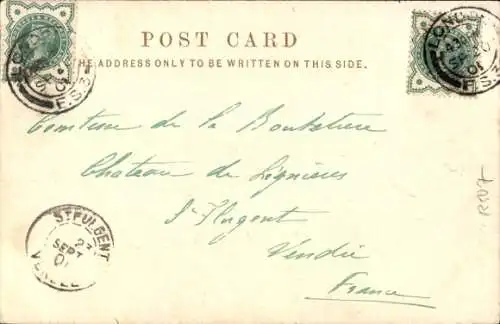 POST CARD
THE ADDRESS ONLY TO BE WRITTEN ON THIS SIDE.
LONDON
F.S.3
LONDON
F.S.3
Comtesse de la Boutetière
Chateau de Lignières
St Fulgent
Vendée
France
ST FULGENT
23
SEPT
01
VENDEE